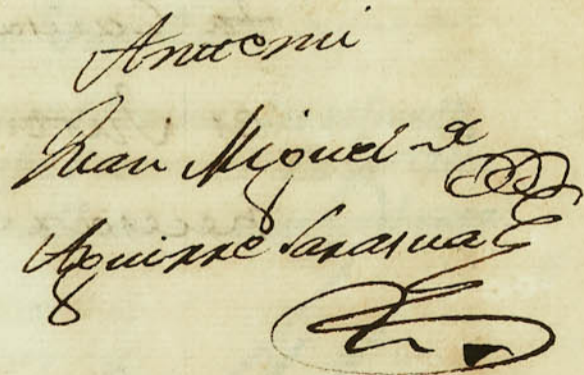 Antteni
Juan Miguel de
Aguirre Sarasua